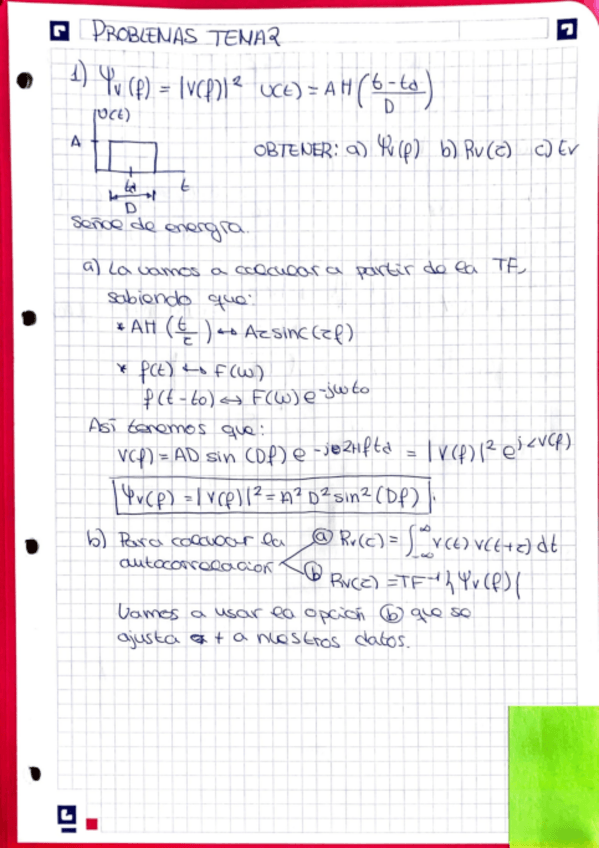 PROBLEMAS TEMA 2
1) Ψv(f) = |V(f)|² v(t) = AΠ((t-td)/D)
v(t)
A
OBTENER: a) Ψv(f) b) Rv(τ) c) Ev
td
t
D
Señal de energía.
a) La vamos a calcular a partir de la TF,
sabiendo que:
* AΠ(t/τ) ↔ Aτ sinc(τf)
* f(t) ↔ F(w)
f(t-to) ↔ F(w) e^-jwto
Así tenemos que:
V(f) = AD sin (Df) e^-j2Πftd = |V(f)|² e^j∠V(f)
Ψv(f) = |V(f)|² = A² D² sin² (Df).
b) Para calcular la
autocorrelación
a Rv(τ) = ∫_-∞^∞ v(t) v(t+τ) dt
b Rv(τ) = TF⁻¹{Ψv(f)}
Vamos a usar la opción b que se
ajusta + a nuestros datos.